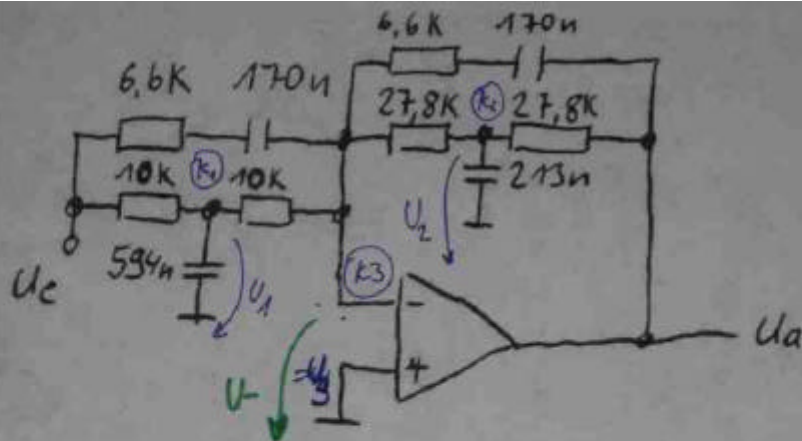 6,6K 170n
6,6K 170n
27,8K K2 27,8K
10K K1 10K
213n
U2
594n
Ue
U1
K3
-
+
U-
Ua